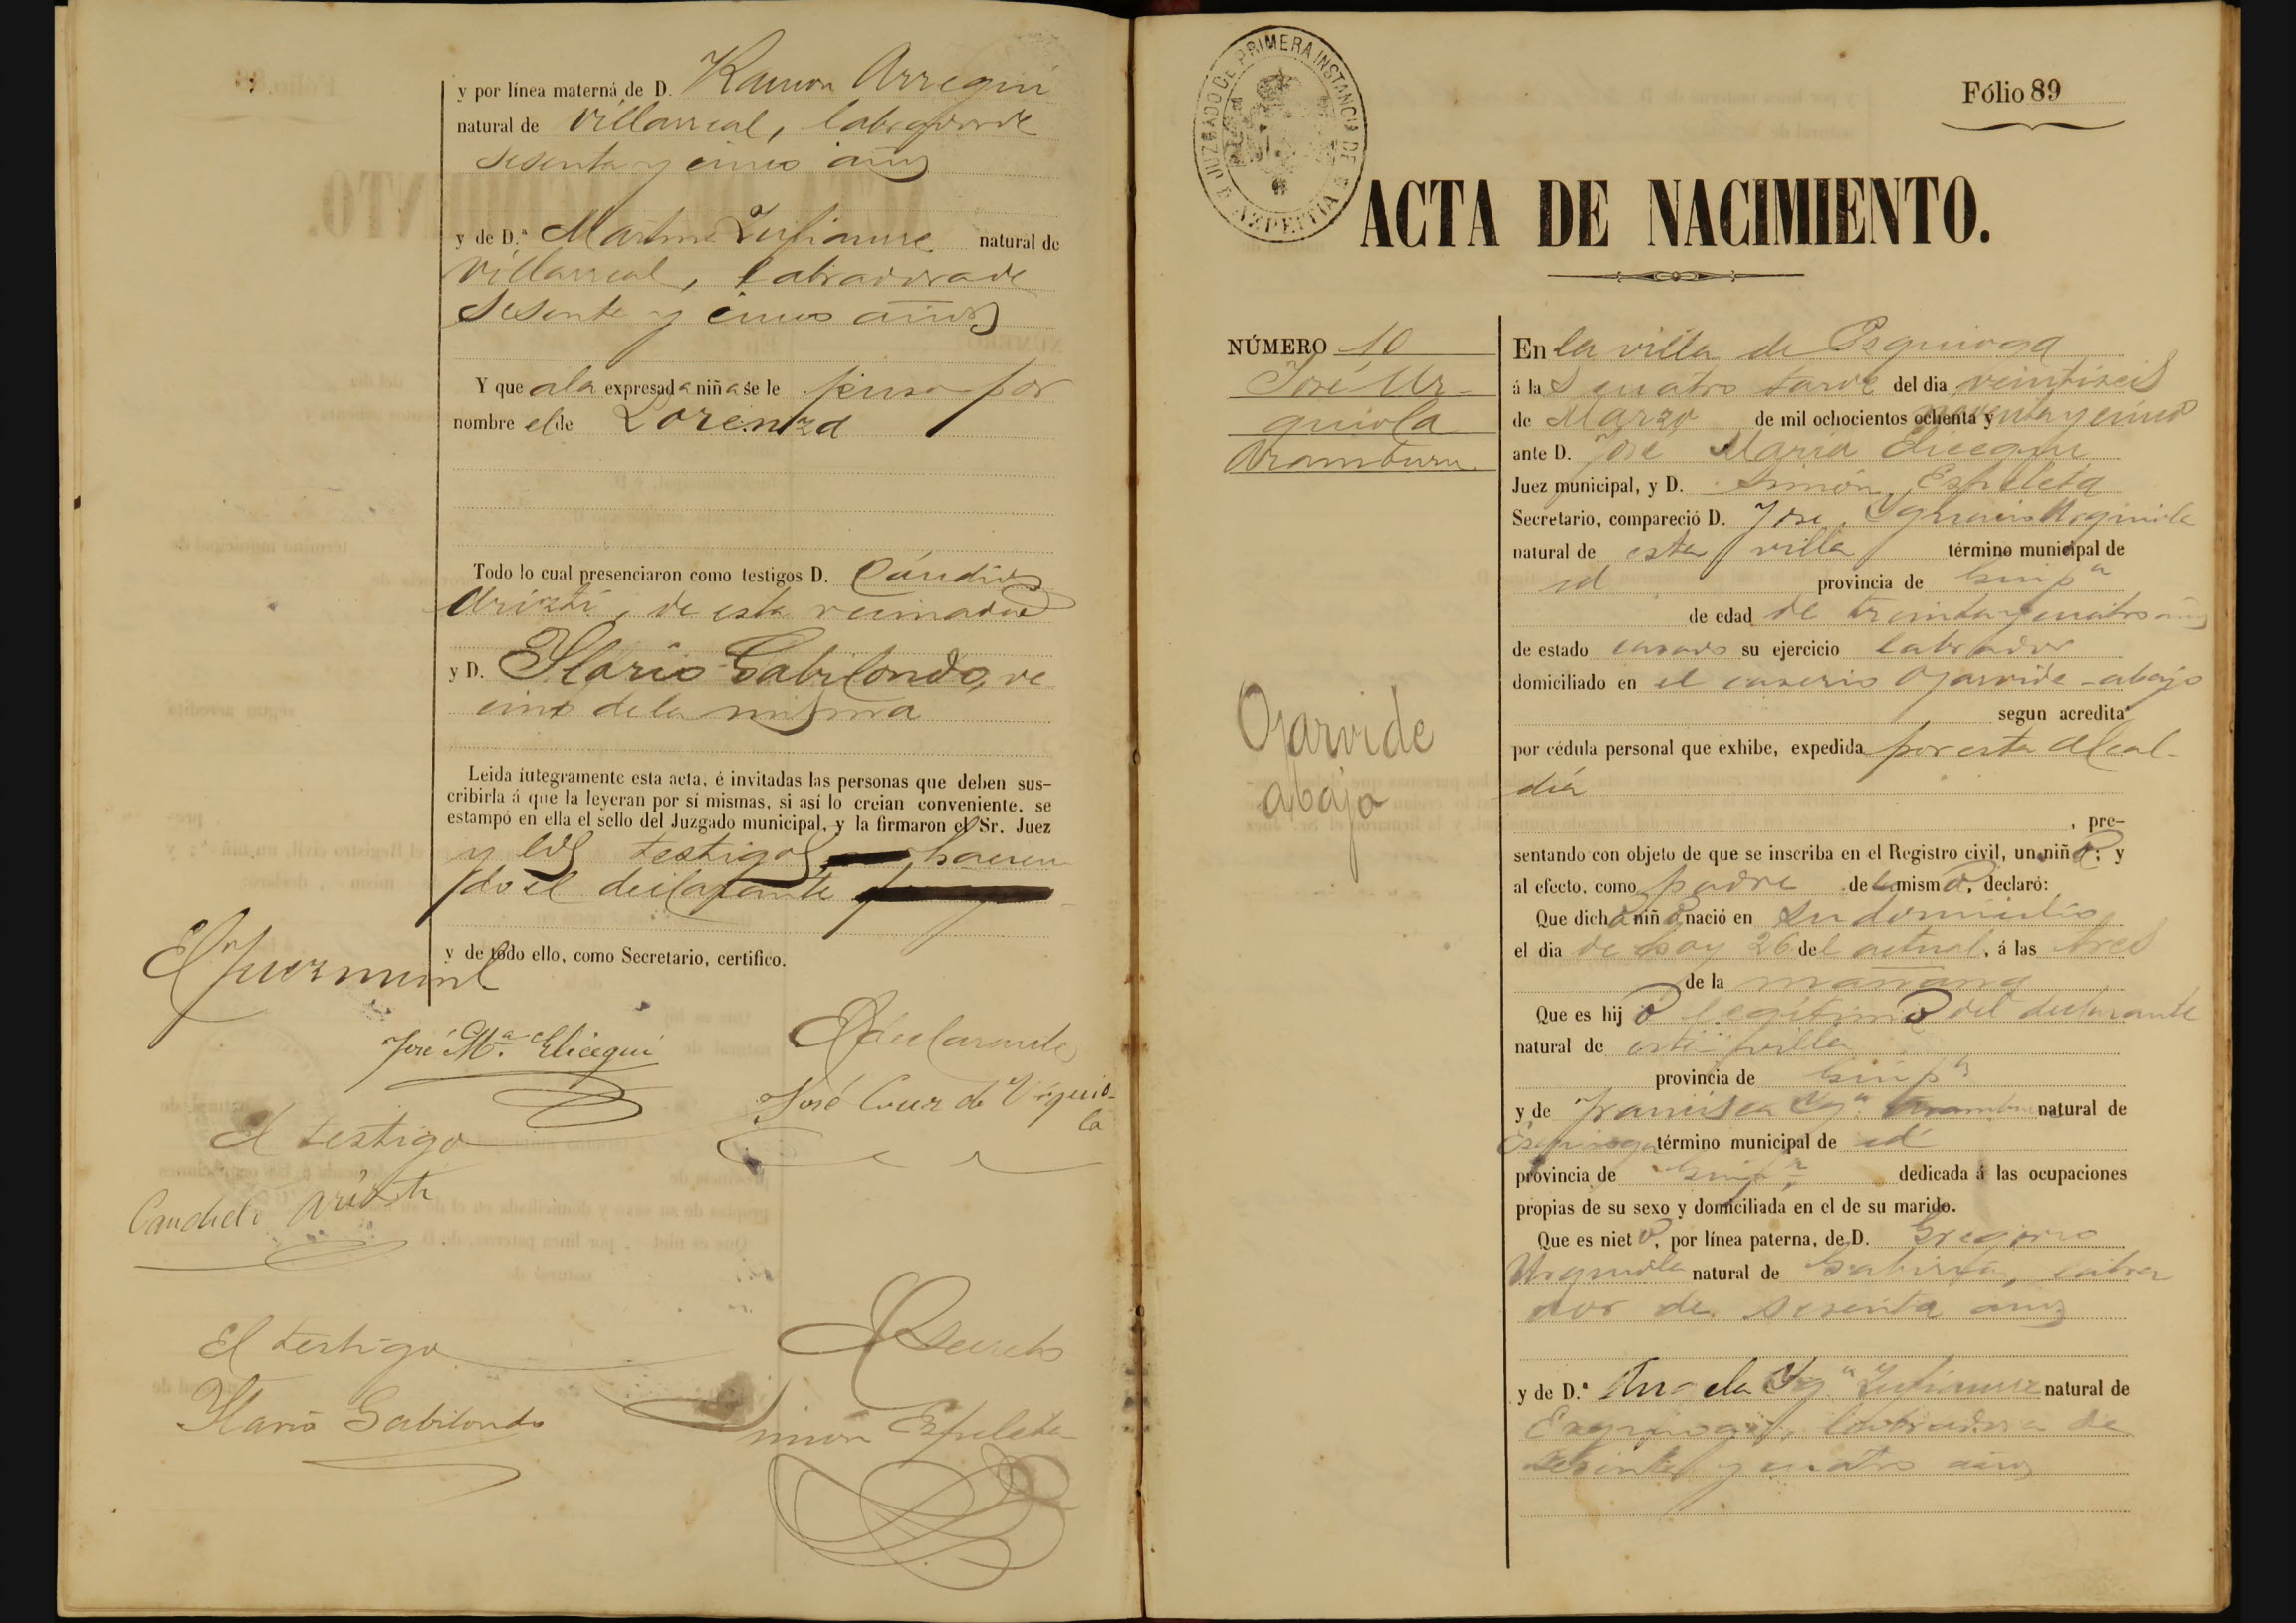 y por línea materna de D. Ramon Arregui
natural de Villarreal, labrador de
sesenta y cinco años
y de D.ª Martina Zufiaurre natural de
Villarreal, labradora de
sesenta y cinco años
Y que a la expresada niña se le puso por
nombre el de Lorenza
Todo lo cual presenciaron como testigos D. Cándido
Arizti, de esta vecindad
y D. Ilario Gabilondo, ve
cino de la misma
Leida íntegramente esta acta, é invitadas las personas que deben sus-
cribirla á que la leyeran por sí mismas, si así lo creian conveniente, se
estampó en ella el sello del Juzgado municipal, y la firmaron el Sr. Juez
y los testigos, hacien
do el declarante
y de todo ello, como Secretario, certifico.
El Juez munl
José Mª. Elicegui
El declarante
José Cruz de Urquio-
la
El testigo
Candido Arizti
El testigo
Ilario Gabilondo
El Secreto
Simón Espeleta
JUZGADO DE PRIMERA INSTANCIA DE AZPEITIA
Fólio 89
ACTA DE NACIMIENTO.
NÚMERO 10
José Ur-
quiola
Aramburu
Ojarvide
abajo
En la villa de Ezquioga
á las cuatro tarde del dia veintiseis
de Marzo de mil ochocientos ochenta y noventa y cinco
ante D. José María Elicegui
Juez municipal, y D. Simón Espeleta
Secretario, compareció D. José Ignacio Urquiola
natural de esta villa término municipal de
id provincia de Guipª
de edad de treinta y cuatro años
de estado casado su ejercicio labrador
domiciliado en el caserio Ojarvide-abajo
segun acredita
por cédula personal que exhibe, expedida por esta Alcal-
día
, pre-
sentando con objeto de que se inscriba en el Registro civil, un niño; y
al efecto, como padre del mismo, declaró:
Que dicho niño nació en su domicilio
el dia de hoy 26 del actual, á las tres
de la mañana
Que es hijo legítimo del declarante
natural de esta villa
provincia de Guipª
y de Francisca Igª Aramburu natural de
Ezquioga término municipal de id
provincia de Guipª dedicada á las ocupaciones
propias de su sexo y domiciliada en el de su marido.
Que es nieto, por línea paterna, de D. Gregorio
Urquiola natural de Gabiria, labra
dor de sesenta años
y de D.ª Angela Igª Zufiaurre natural de
Ezquioga, labradora de
sesenta y cuatro años